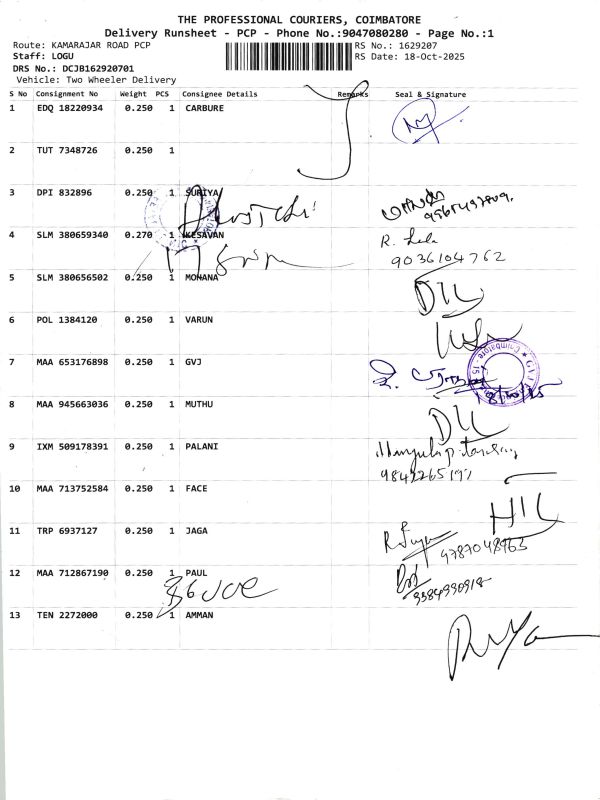 THE PROFESSIONAL COURIERS, COIMBATORE
Delivery Runsheet - PCP - Phone No.:9047080280 - Page No.:1
Route: KAMARAJAR ROAD PCP
RS No.: 1629207
Staff: LOGU
RS Date: 18-Oct-2025
DRS No.: DCJB162920701
Vehicle: Two Wheeler Delivery
S No Consignment No Weight PCS Consignee Details Remarks Seal & Signature
1 EDQ 18220934 0.250 1 CARBURE
2 TUT 7348726 0.250 1
3 DPI 832896 0.250 1 SURIYA
4 SLM 380659340 0.270 1 KESAVAN
R. Lela
9036104762
5 SLM 380656502 0.250 1 MOHANA
6 POL 1384120 0.250 1 VARUN
7 MAA 653176898 0.250 1 GVJ
8 MAA 945663036 0.250 1 MUTHU
9 IXM 509178391 0.250 1 PALANI
10 MAA 713752584 0.250 1 FACE
11 TRP 6937127 0.250 1 JAGA
9787048963
12 MAA 712867190 0.250 1 PAUL
9384990918
13 TEN 2272000 0.250 1 AMMAN